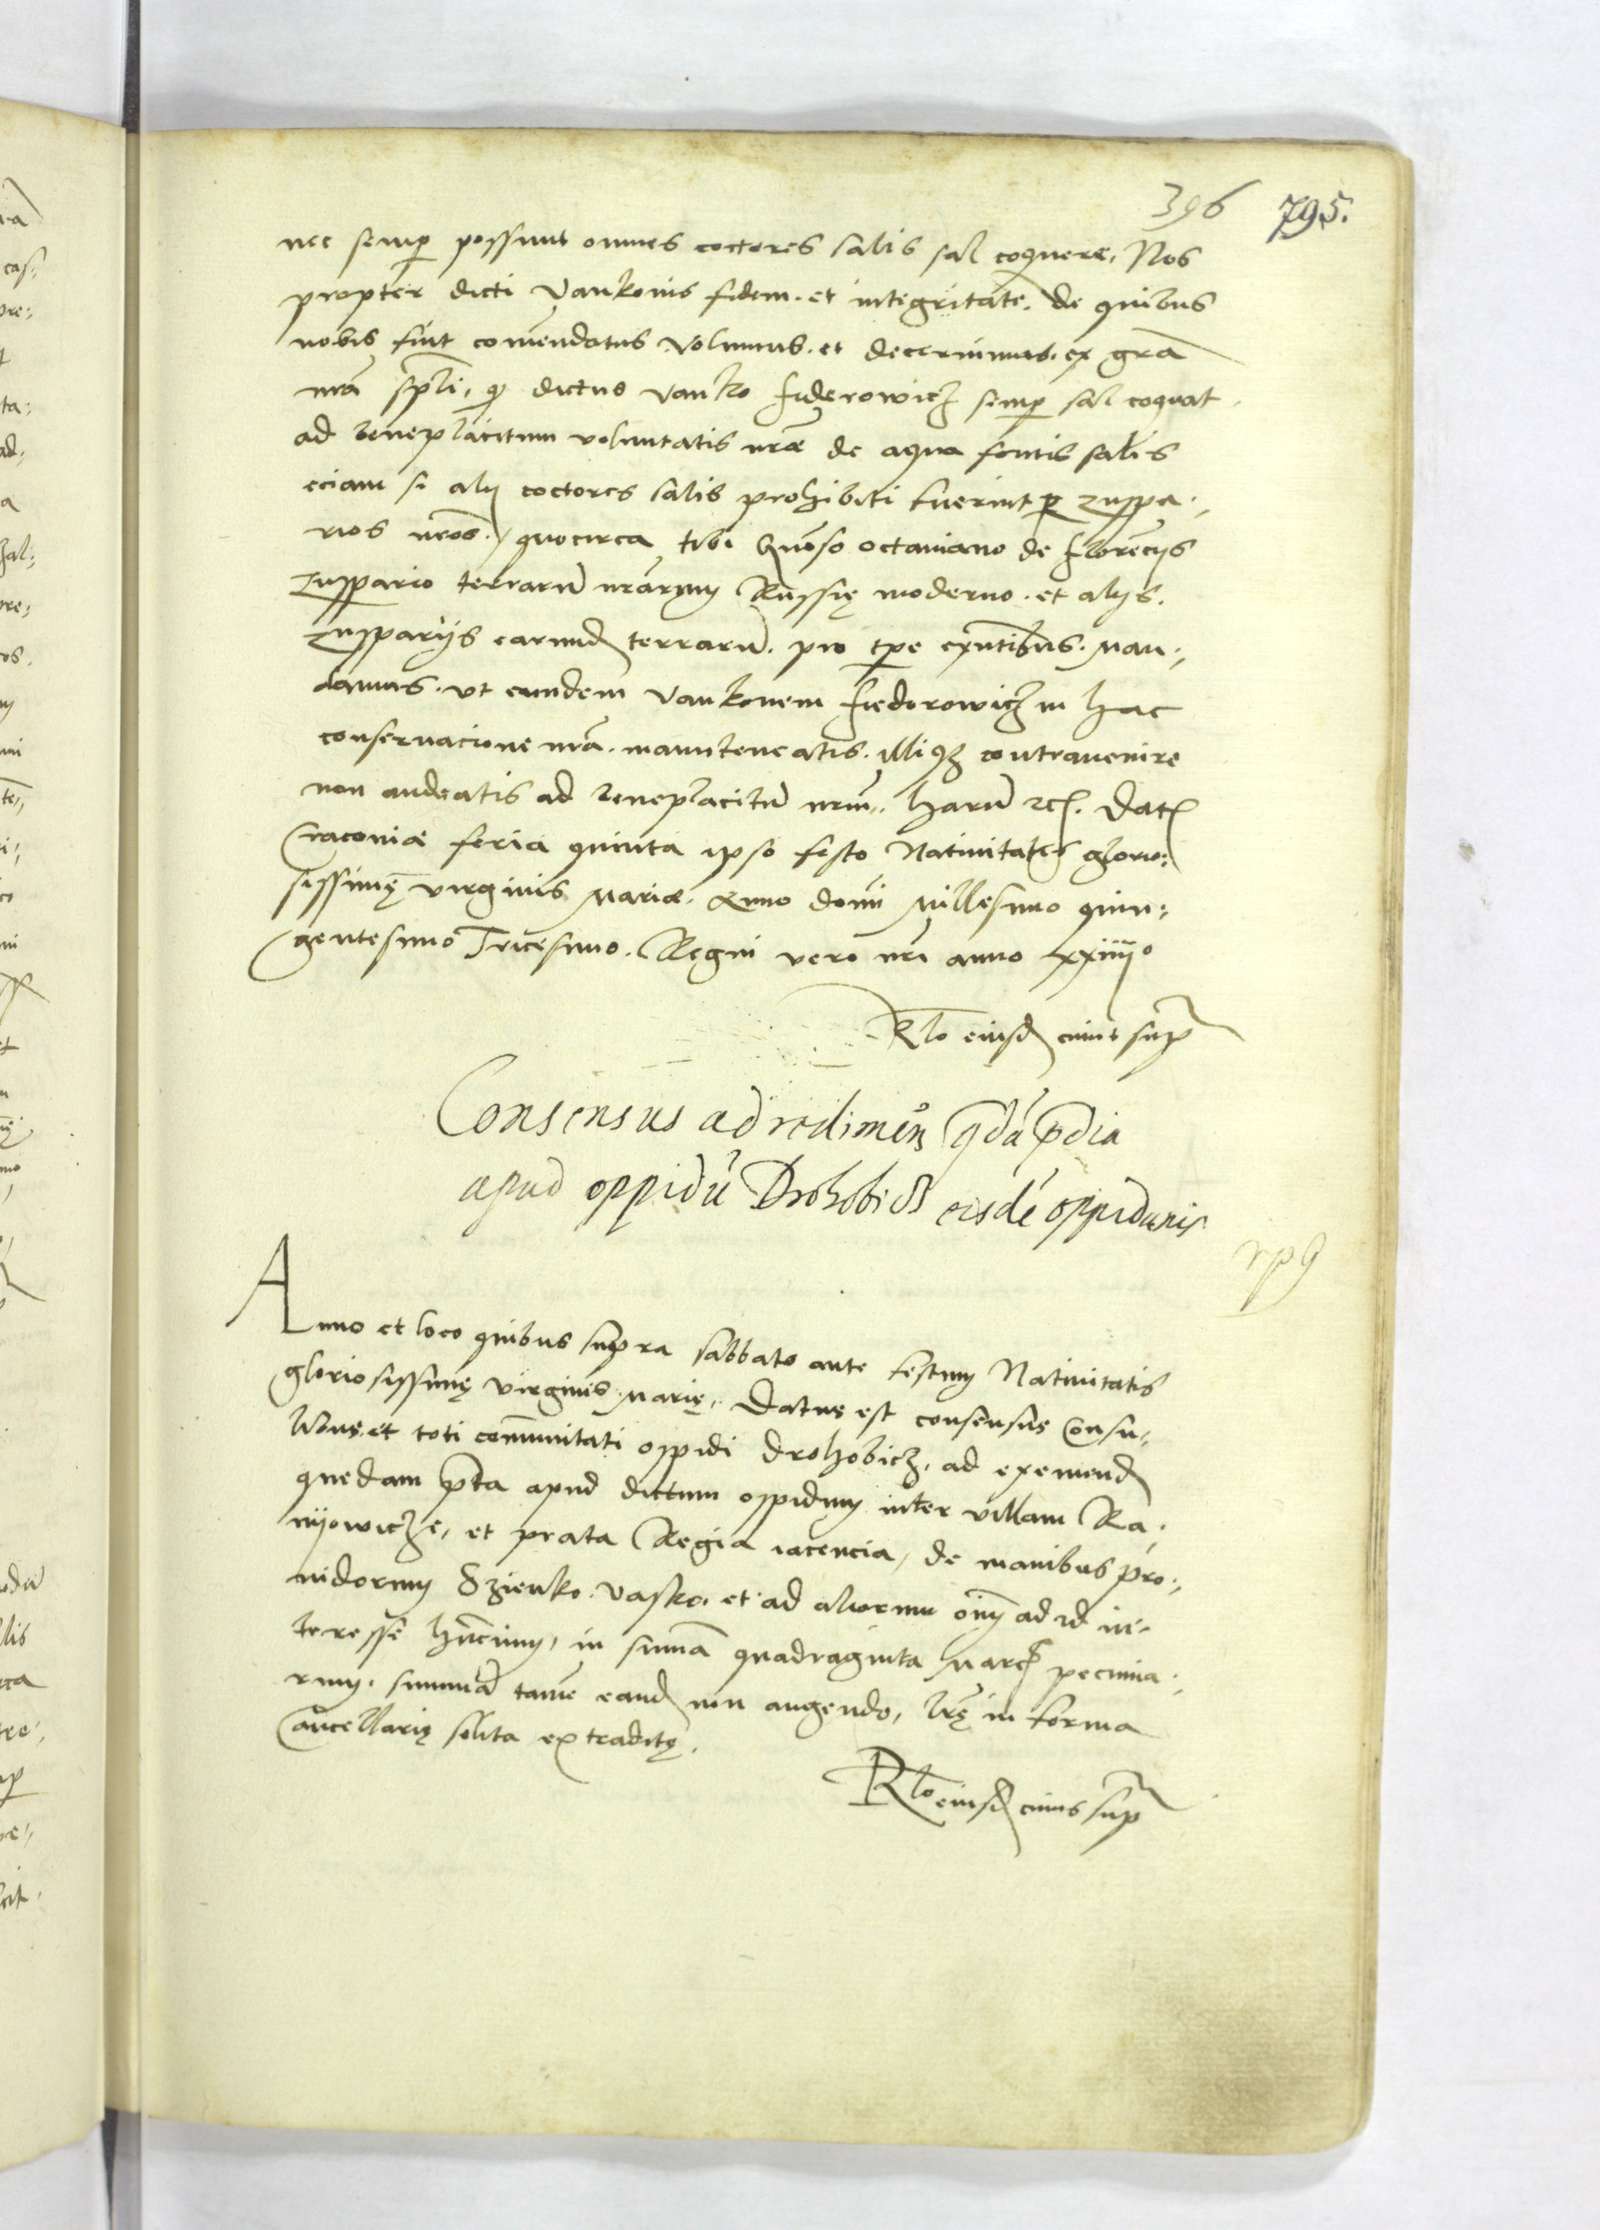 396 795.
nec semp possunt omnes coctores salis sal coquere, Nos
propter dicti Vankonis fidem. et integritatē. de quibus
nobis fuit comendatus. Volumus. et decernimus. ex grā
nrā spāli, q dictus Vanko fiderowicz semp sal coquat
ad beneplacitum voluntatis nrae de aqua fontis salis
eciam si alij coctores salis prohibiti fuerint p zuppa„
rios nros. quocirca tibi Gnōso octaviano de florēcijs
zuppario terrarū nrārum Russię moderno. et alijs.
zupparijs earund terrarū. pro tpe exntibus. Man„
damus. ut eundem Vankonem fiedorowicz in hac
conservacione nrā. manuteneatis. illiqz contravenire
non audeatis ad beneplacitū nrm. harū rc. Dat
Cracoviæ feria quinta ipso festo Nativitatis glorio:
sissimę virginis Mariæ. Anno domi Millesimo quin:
gentesimo Tricesimo. Regni vero nri anno xxiiijo
Rlo eiusd cuius sup
Consensus ad redimen qdā pdia
apud oppidū Drohobicz eisdē oppidanis
Anno et loco quibus supra sabbato ante festum Nativitatis
gloriosissimę virginis Marię. Datus est consensus Consu„
libus et toti comunitati oppidi Drohobicz, ad exemend
quedam pta apud dictum oppidum inter villam Ra„
nijowicze, et prata Regia iacencia, de manibus pro„
vidorum Szienko. Vasko. et ad aliorum oīm ad id in„
teresse hncium, in sumā quadraginta Marc pecunia„
rum. summā tamē eand non augendo, lrę in forma
Cancellarię solita extraditę.
Rlo eiusd cuius sup